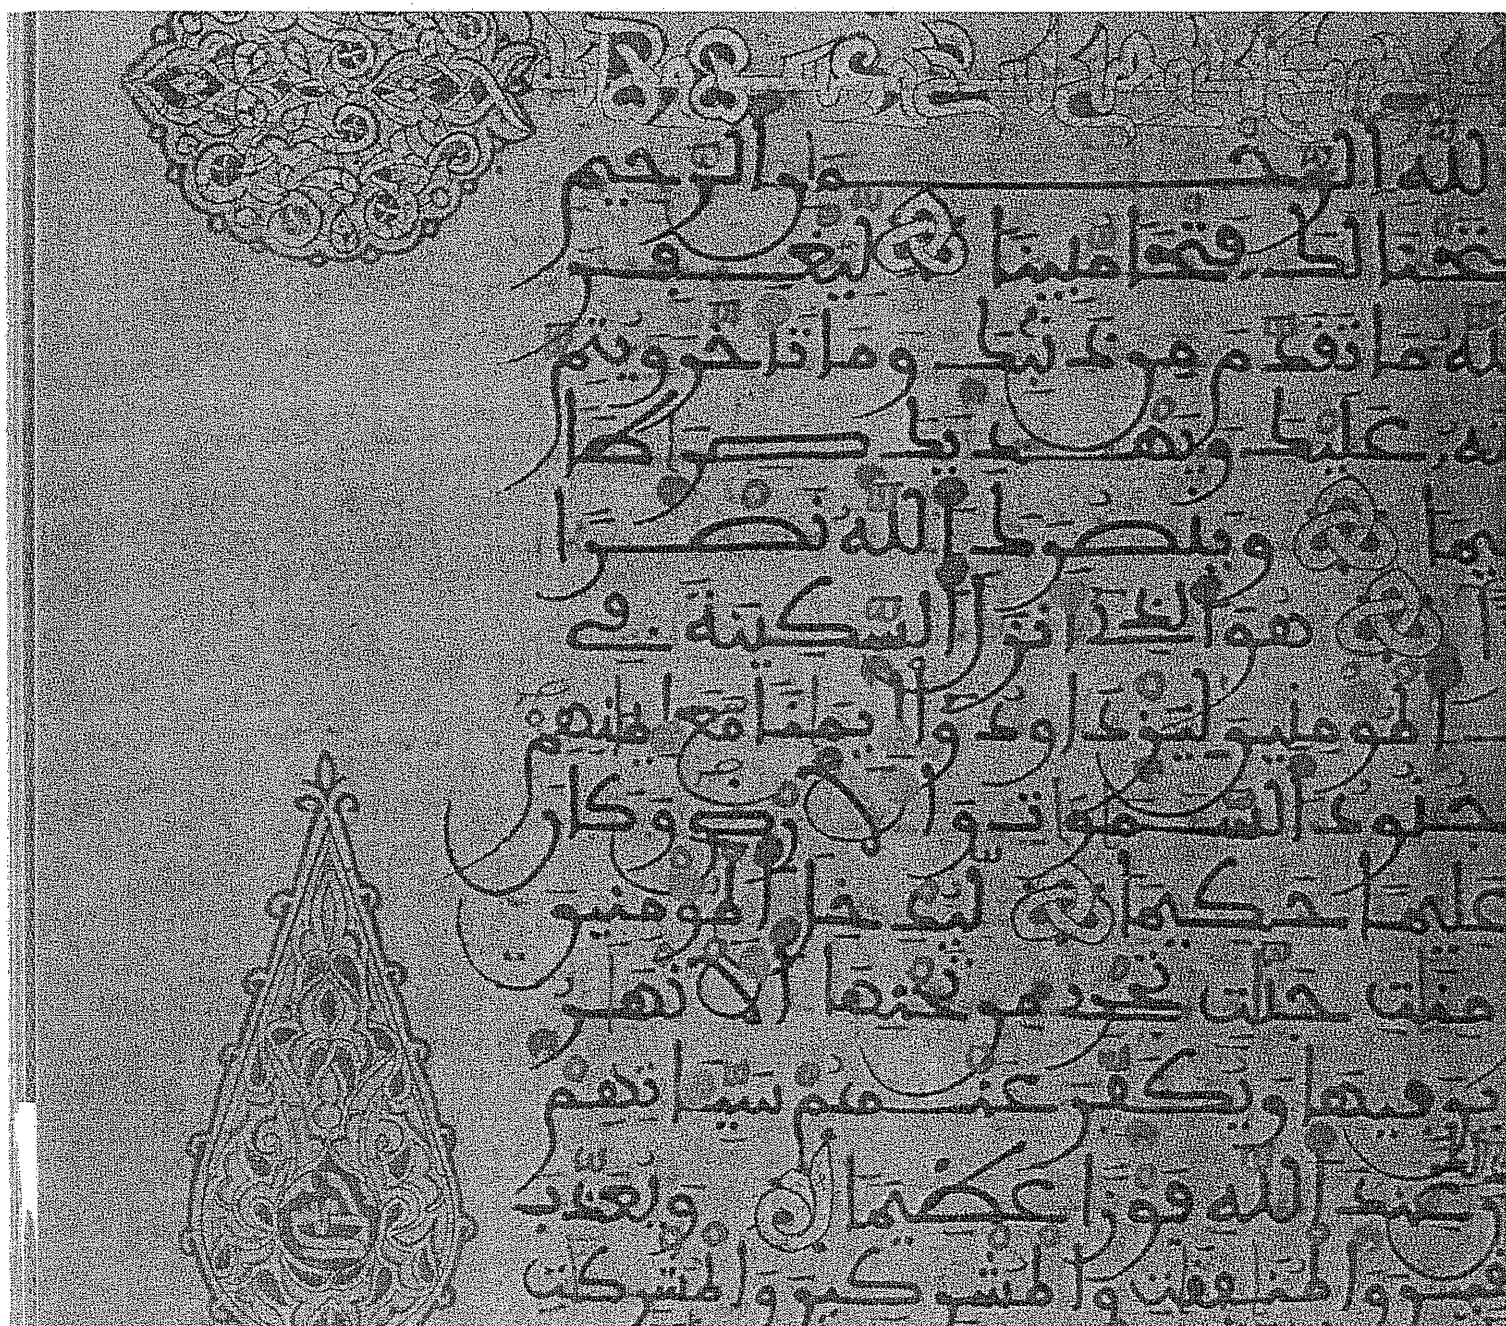 لله الرحمن الرحيم
لك فتحا مبينا ليغفر
لله ما تقدم من ذنبك وما تاخر ويتم
ته عليك ويهديك صراطا
يما وينصرك الله نصرا
ا هو الذي انزل السكينة في
المومنين ليزدادوا ايمنا مع ايمنهم
جنود السموات والارض وكان
عليما حكيما ليدخل المومنين
منت جنت تجري من تحتها الانهر
ين فيها ويكفر عنهم سياتهم
عند الله فوزا عظيما ويعذب
والمنفقت والمشركين والمشركت